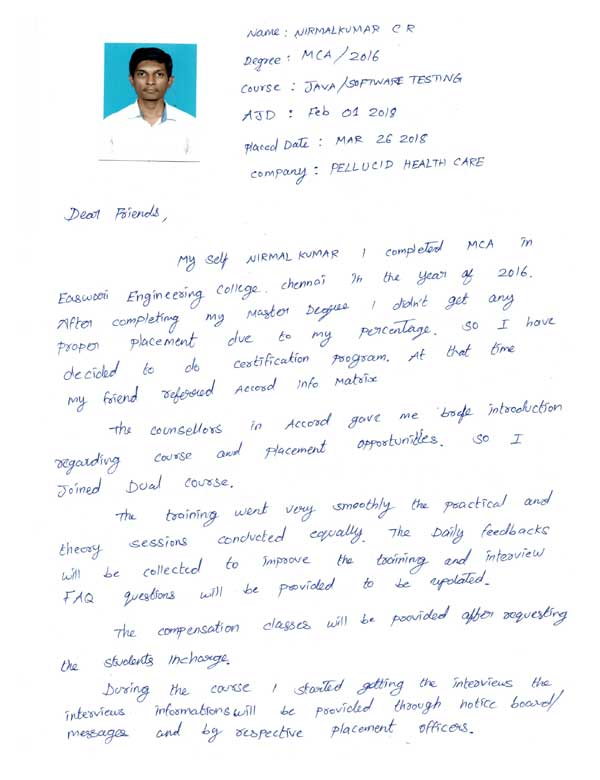 Name : NIRMALKUMAR C R
Degree : MCA / 2016
Course : JAVA/SOFTWARE TESTING
AJD : Feb 01 2018
placed Date : MAR 26 2018
company : PELLUCID HEALTH CARE
Dear Friends,
My self NIRMAL KUMAR I completed MCA in
Easwari Engineering College. chennai in the year of 2016.
After completing my Master Degree I didn't get any
proper placement due to my percentage. so I have
decided to do certification program. At that time
my friend referred Accord Info Matrix
The counsellors in Accord gave me brife introduction
regarding course and placement opportunities. so I
Joined Dual course.
The training went very smoothly the practical and
theory sessions conducted equally. The Daily feedbacks
will be collected to improve the training and interview
FAQ questions will be provided to be updated.
The compensation classes will be provided after requesting
the students Incharge.
During the course I started getting the interviews the
interviews informations will be provided through notice board/
messages and by respective placement officers.